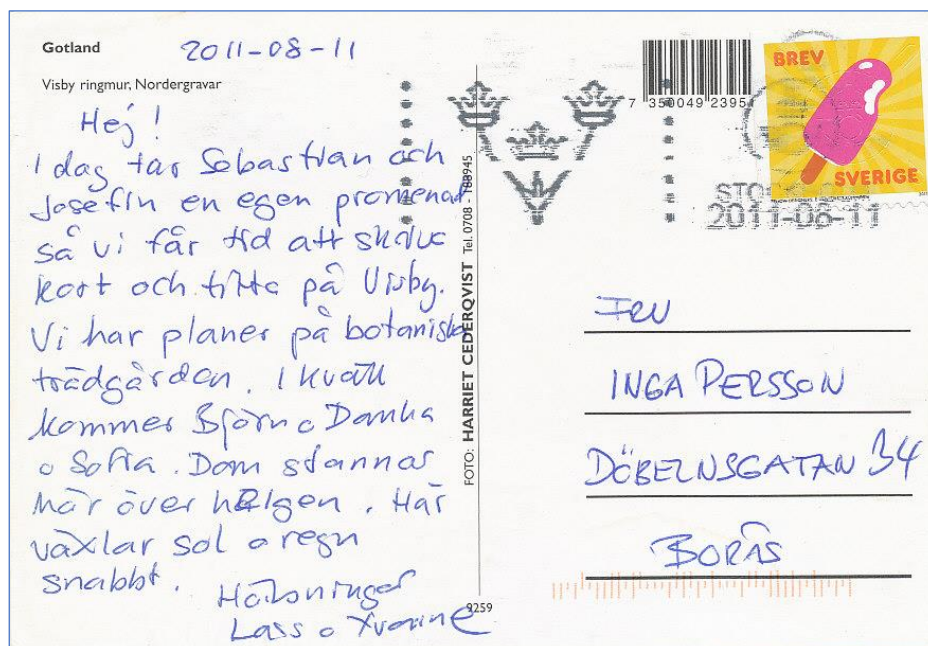 Gotland
2011-08-11
Visby ringmur, Nordergravar
Hej!
I dag tar Sebastian och
Josefin en egen promenad
så vi får tid att skriva
kort och titta på Visby.
Vi har planer på botaniska
trädgården. I kväll
kommer Björn o Danka
o Sofia. Dom stannar
här över helgen. Här
växlar sol o regn
snabbt.
Hälsningar
Lass o Yvonne
FOTO: HARRIET CEDERQVIST Tel. 0708 - 188945
9259
7 350049 23951
BREV
SVERIGE
2011-08-11
FRU
INGA PERSSON
DÖBELNSGATAN 34
BORÅS